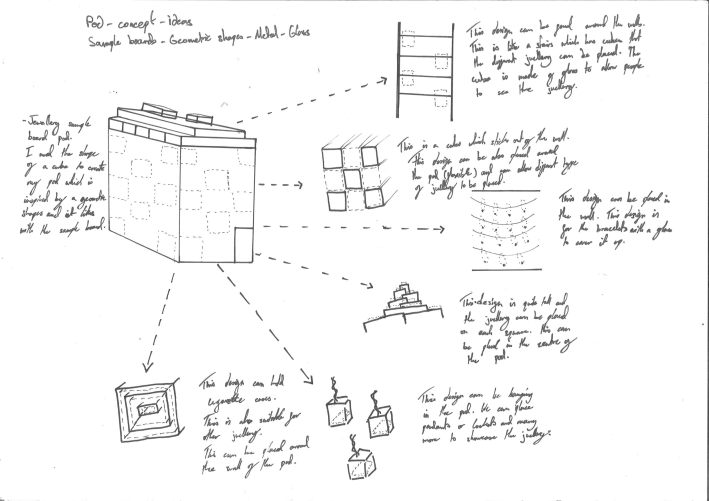 Pod - concept - ideas
Sample boards - Geometric shapes - Metal - Glass
This design can be placed around the walls.
This is like a stairs which has cubes that
the different jewellery can be placed. The
cubes is made of glass to allow people
to see the jewellery.
- Jewellery sample
board pod.
I used the shape
of a cube to create
my pod which is
inspired by a geometric
shapes and it links
with the sample board.
This is a cube which sticks out of the wall.
This design can be also placed around
the pod (possible) and can allow different type
of jewellery to be placed.
This design can be placed in
the wall. This design is
for the bracelets with a glass
to cover it up.
This design is quite tall and
the jewellery can be placed
on each square. This can
be placed in the centre of
the pod.
This design can hold
This is also suitable for
other jewellery.
This can be placed around
the wall of the pod.
This design can be hanging
in the pod. We can place
pendants or lockets and many
more to showcase the jewellery.